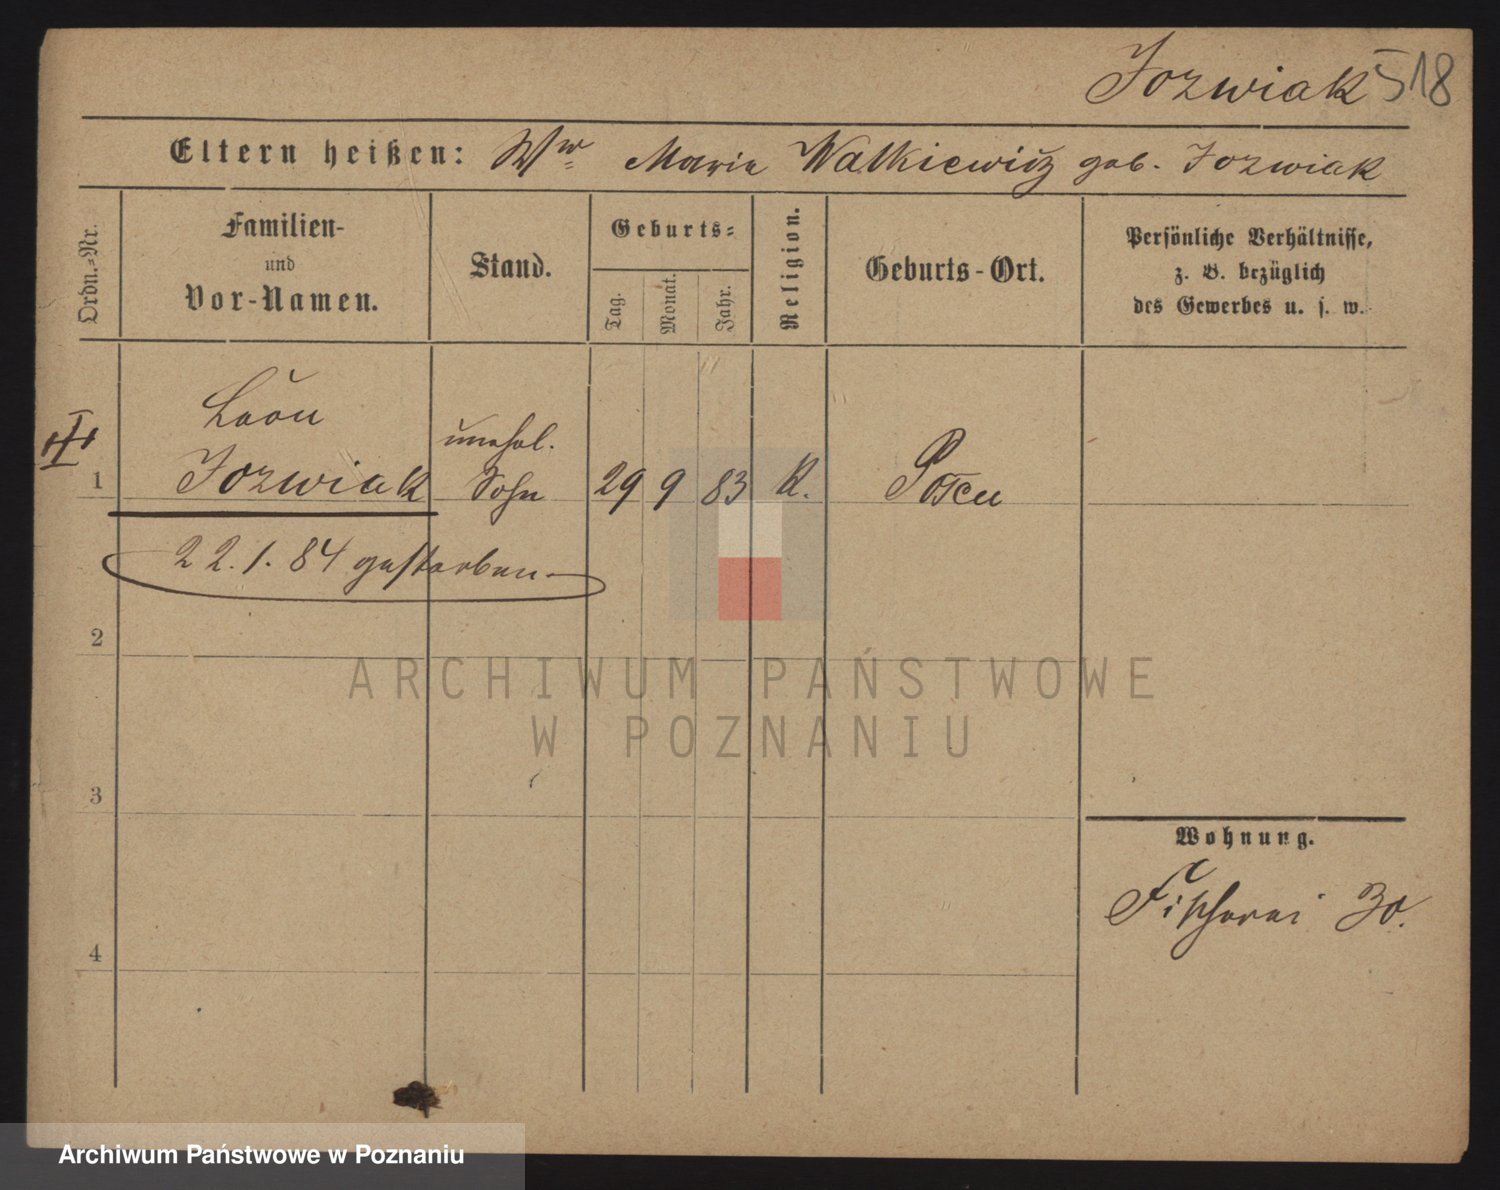 Jozwiak 518
Eltern heißen: Ww Marie Walkiewicz geb. Jozwiak
Ordn.-Nr.
Familien-
und
Vor-Namen.
Stand.
Geburts-
Tag.
Monat.
Jahr.
Religion.
Geburts-Ort.
Persönliche Verhältnisse,
z. B. bezüglich
des Gewerbes u. s. w.
Leon
unehel.
1 Jozwiak Sohn 29 9 83 K. Posen
22.1.84 gestorben.
2
3
Wohnung.
Fischerei 30.
4
ARCHIWUM PAŃSTWOWE
W POZNANIU
Archiwum Państwowe w Poznaniu